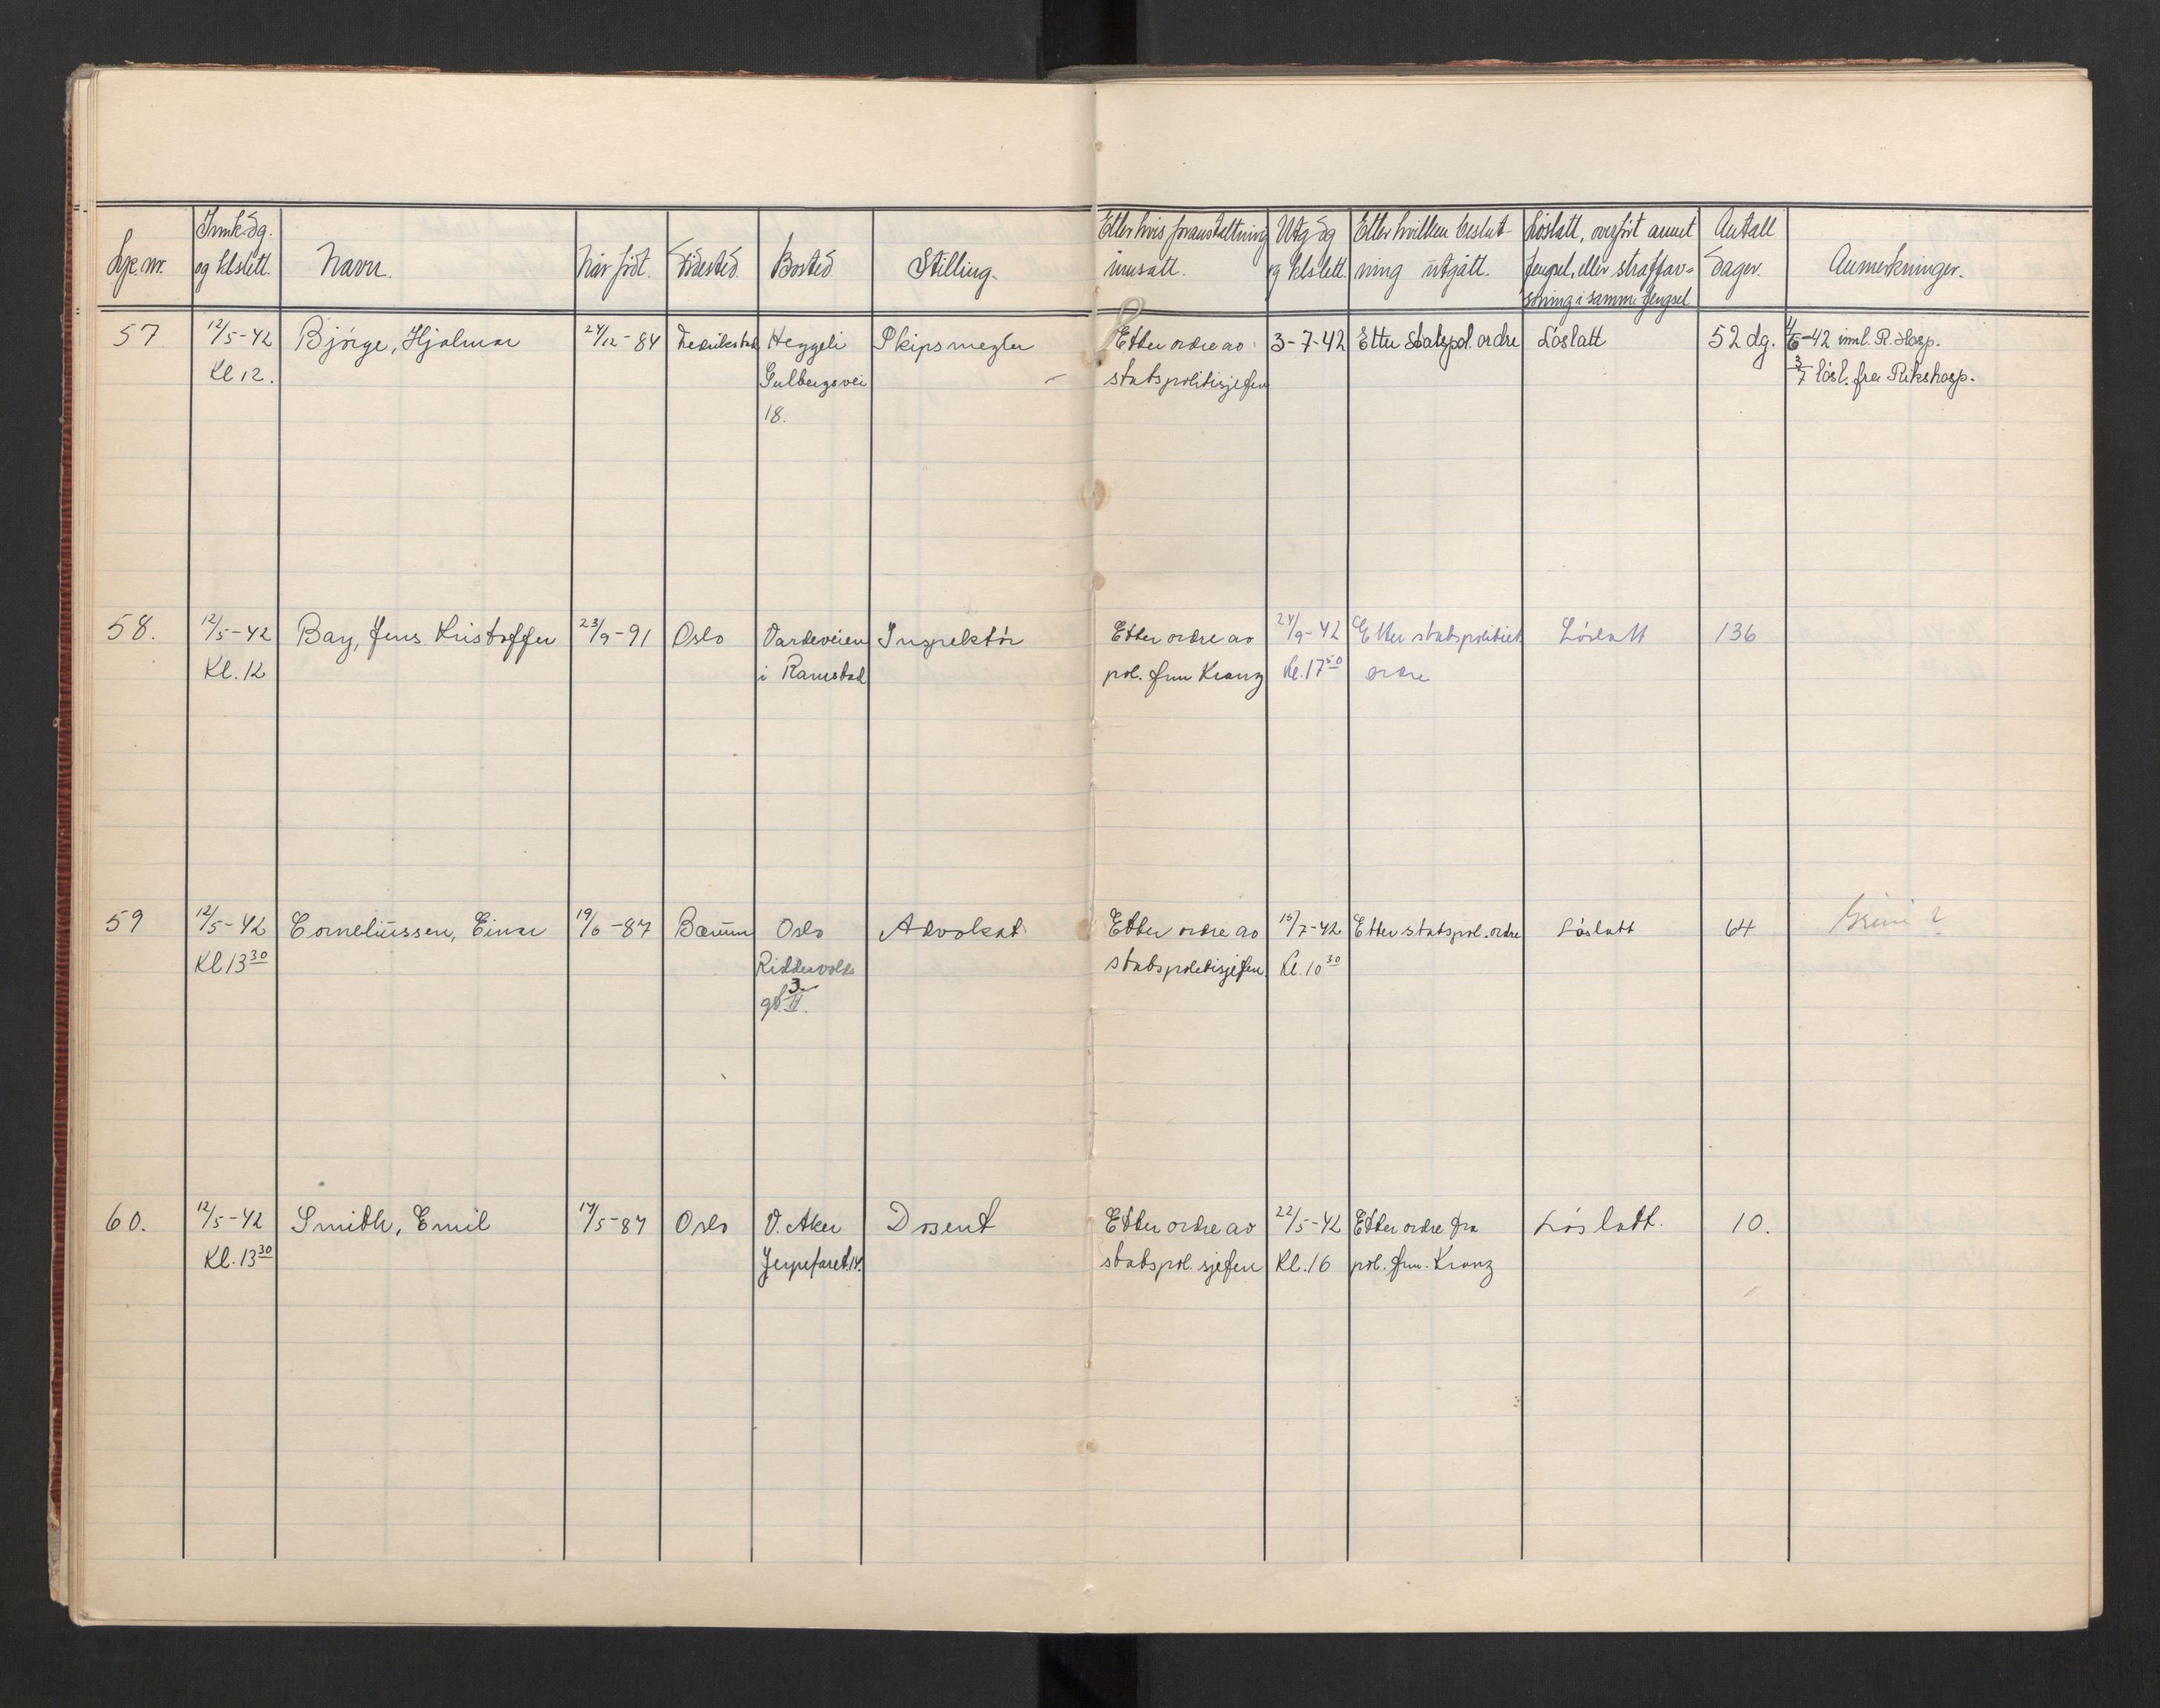 Lpe.nr.
Innk.dg. og klslett.
Navn.
Når født.
Fødested.
Bosted.
Stilling.
Etter hvis foranstaltning innsatt.
Utg.dg og klslett.
Etter hvilken beslut-
ning utgått.
Løslatt, overført annet
fengsel, eller straffav-
soning i samme fengsel
Antall Dager.
Anmerkninger.
57 12/5-42 Bjørge, Hjalmar 24/12-84 Fredrikstad Heggeli Skipsmegler Etter ordre av 3-7-42 Etter Statspol. ordre Løslatt 52 dg. 4/6-42 innl. R. Hosp.
Kl 12. Gulbergsvei statspolitisjefen 3/7 løsl. fra Rikshosp.
18.
58. 12/5-42 Bay, Jens Kristoffer 23/9-91 Oslo Vardeveien Inspektør Etter ordre av 24/9-42 Etter statspolitiets Løslatt 136
Kl. 12 i Ramstad pol. fm Kranz Kl. 17⁵⁰ ordre
59 12/5-42 Corneliussen, Einar 19/6-87 Bærum Oslo Advokat Etter ordre av 15/7-42 Etter statspol. ordre Løslatt 64 Grini ?
Kl 13³⁰ Riddervolds statspolitisjefen Kl. 10³⁰
3
gt. II.
60. 12/5-42 Smith, Emil 17/5-87 Oslo V. Aker Dosent Etter ordre av 22/5-42 Etter ordre fra Løslatt. 10.
Kl. 13³⁰ Jerpefaret 14. statspol. sjefen Kl. 16 pol. fm. Kranz